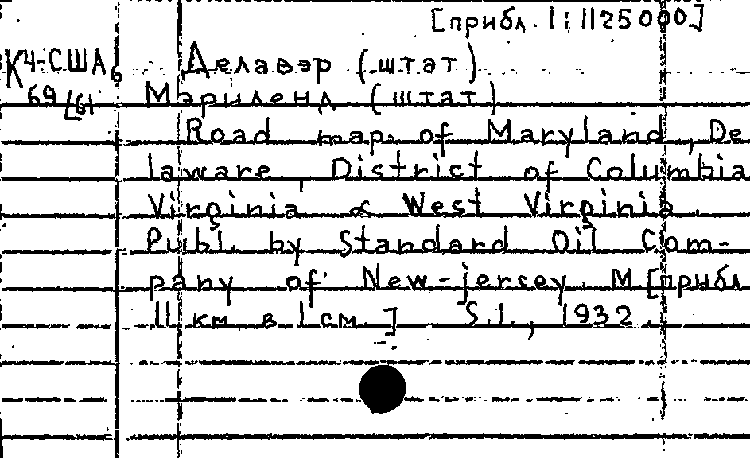 [прибл. 1:1125000]
К4-США6 Делавэр (штат)
69/61 Мэриленд (штат)
Road map of Maryland, De
laware, District of Columbia
Virginia & West Virginia.
Publ. by Standard Oil Com-
pany of New-jersey. М[прибл
11 км в 1 см.] S.l., 1932.